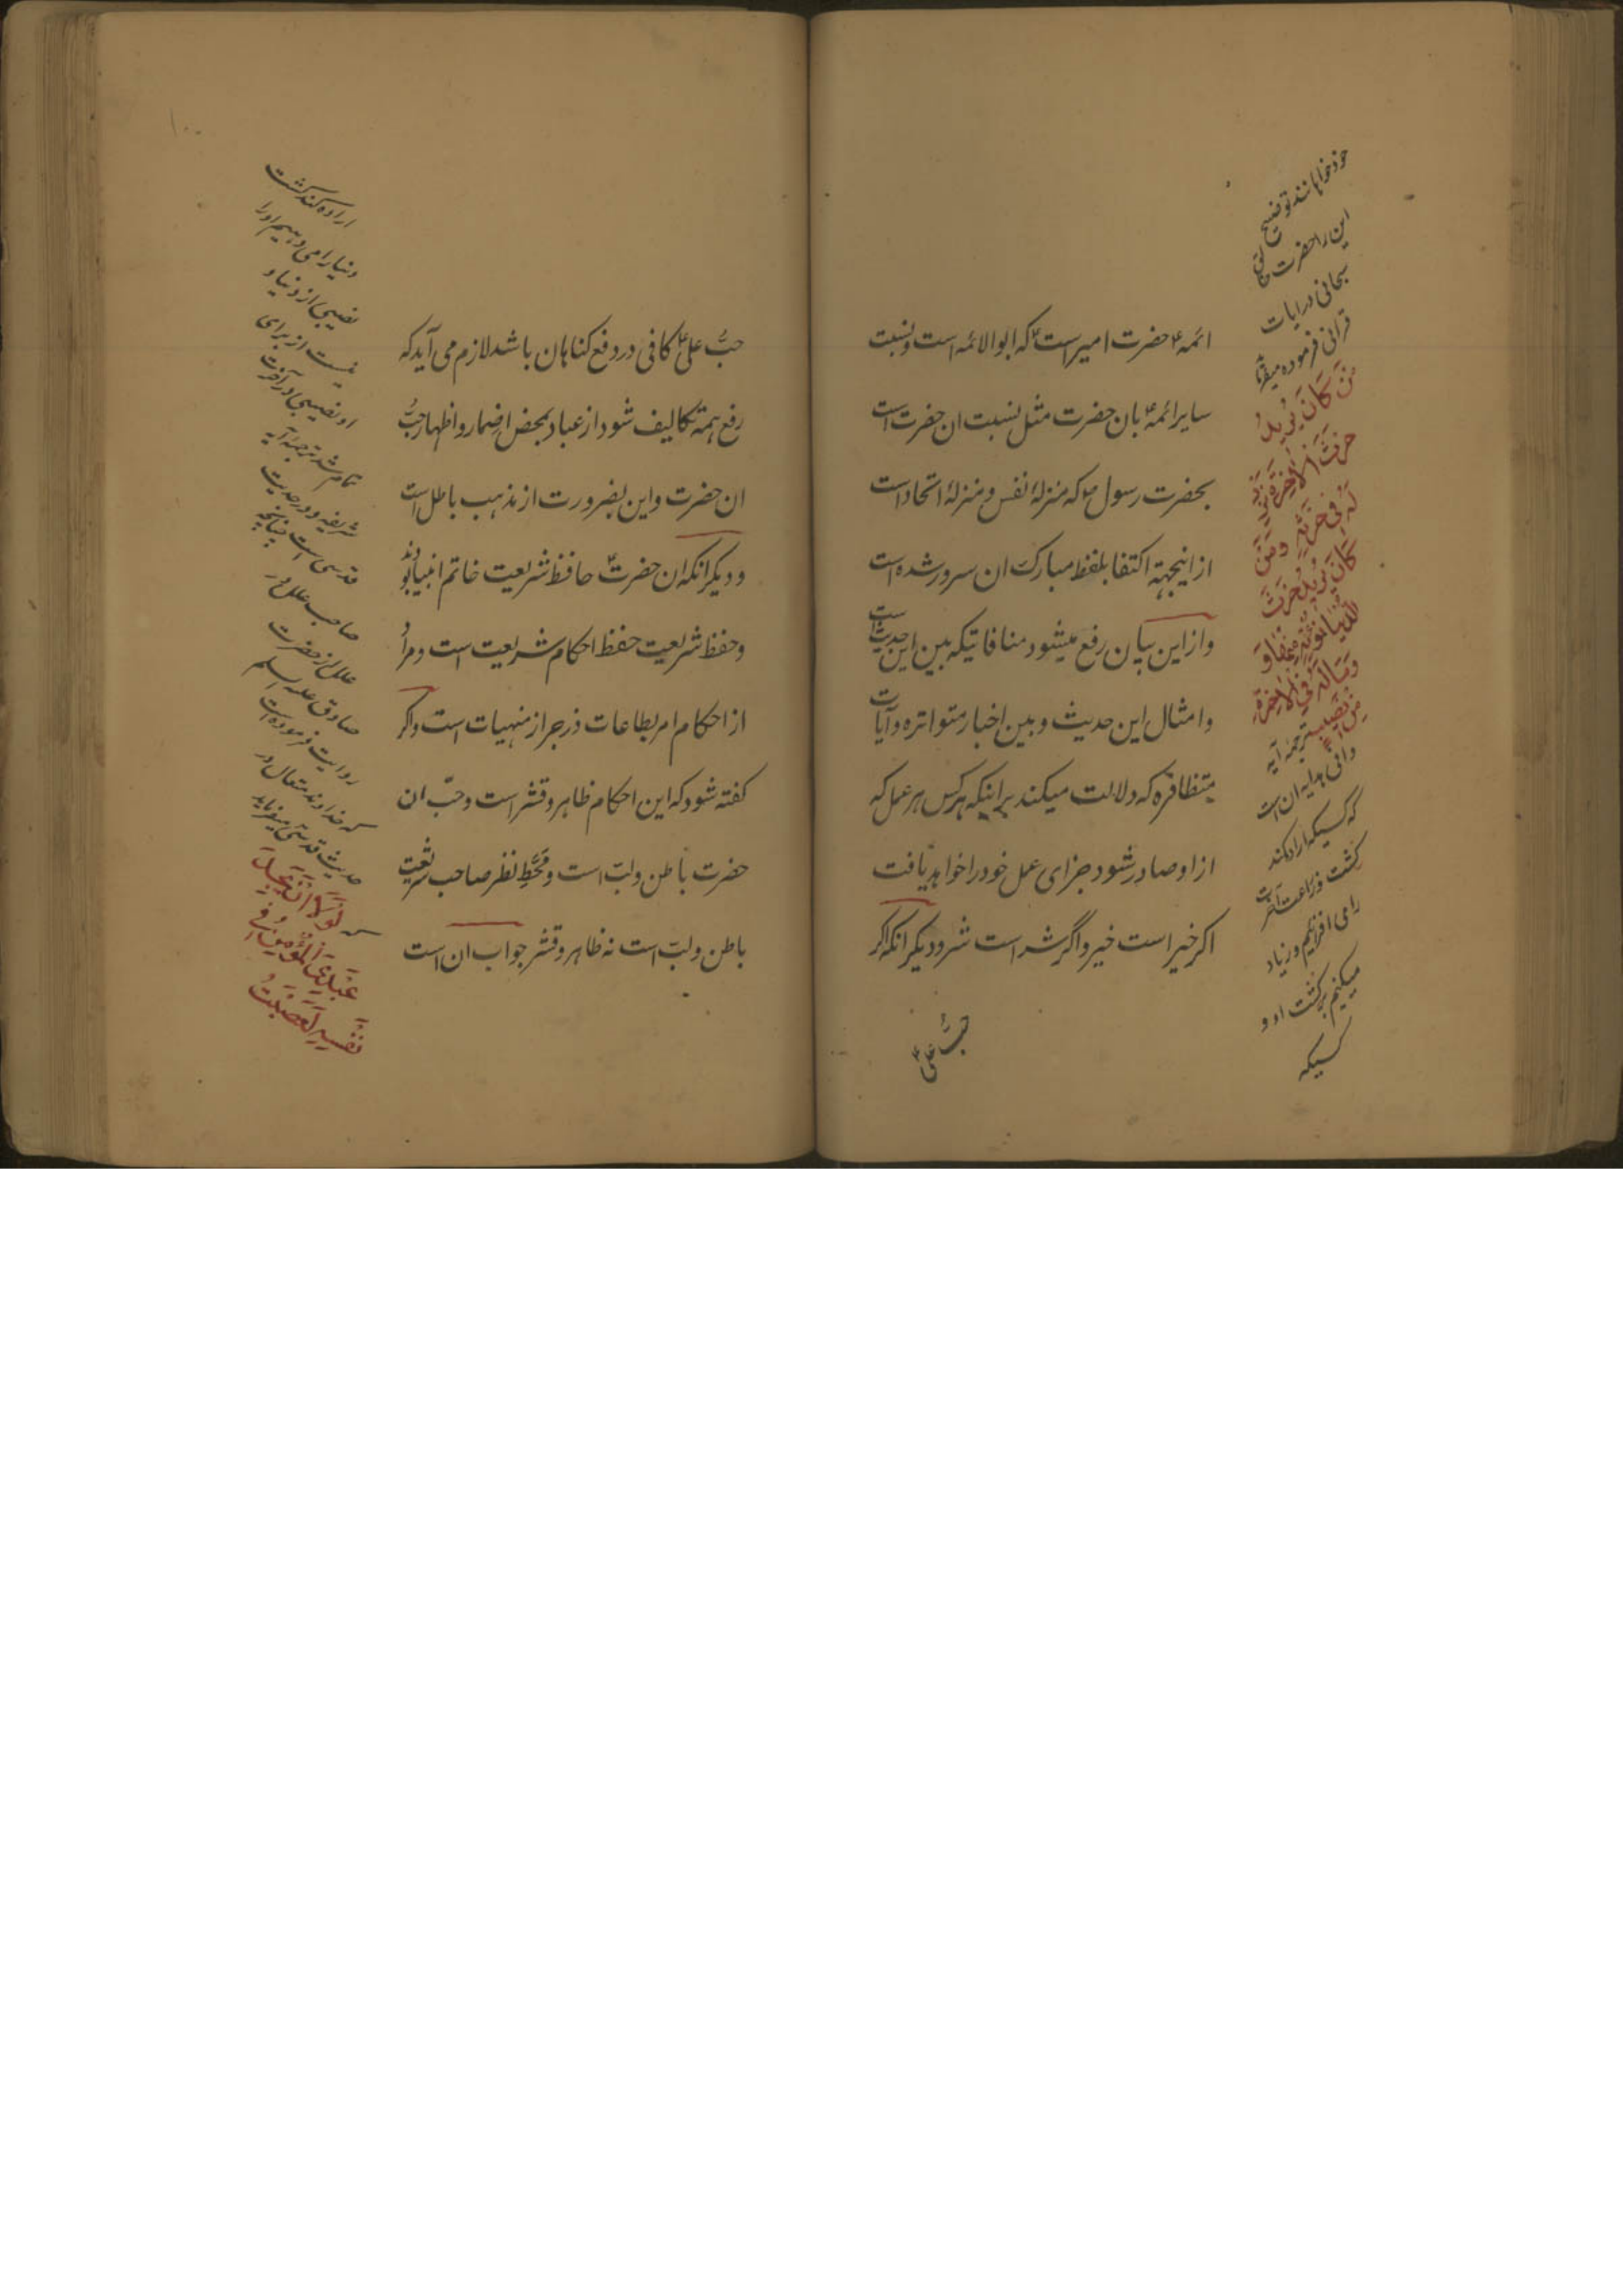 ائمه ع حضرت امیر است ع که ابوالائمه است و نسبت
سایر ائمه ع بان حضرت مثل نسبت ان حضرت است
بحضرت رسول ص که منزلهٔ نفس و منزلهٔ اتحاد است
از اینجهة اکتفا بلفظ مبارک ان سرور شده است
و از این بیان رفع میشود منافاتیکه بین این حدیث است
و امثال این حدیث و بین اخبار متواتره و آیات
متظافره که دلالت میکند بر اینکه هرکس هر عمل که
از او صادر شود جزای عمل خود را خواهد یافت
اکر خیر است خیر و اگر شر است شر و دیکر انکه اکر
حبُّ علی ع
خود خواهانند توضیح
این را حضرت خالق
سبحانی در ایات
قرانی فرموده میفرماید
مَن كَانَ يُريدُ
حَرثَ الاخِرَةِ نَزِد
لَهُ فى حَرثِهِ وَمَن
كَانَ يُريدُ حَرثَ
الدُّنيَا نُؤتِهِ مِنهَا وَ
وَمَا لَهُ فِي الاخِرَةِ
مِن نَصِيبٍ ترجمه آیه
وافی هدایه ان است
که کسیکه اراده کند
کشت و زراعت آخرت
را می افزائیم و زیاد
میکنیم بر کشت او و
کسیکه
حبُّ علی ع کافی در دفع کناهان باشد لازم می آید که
رفع همهٔ تکالیف شود از عباد بمحض اضمار و اظهار حبُّ
ان حضرت و این بضرورت از مذهب باطل است
و دیکر انکه ان حضرت ع حافظ شریعت خاتم انبیا بودند
و حفظ شریعت حفظ احکام شریعت است و مراد
از احکام امر بطاعات و زجر از منهیات است و اکر
کفته شود که این احکام ظاهر و قشر است و حبّ ان
حضرت باطن و لبّ است و مَحَطِّ نظر صاحب شریعت
باطن و لبّ است نه ظاهر و قشر جواب ان است
اراده کند کشت
دنیا را می دهیم او را
نصیبی از دنیا و
نیست از برای
او نصیبی در آخرت
تمام شد ترجمه آیه
شریفه و در حدیث
قدسی است چنانچه
صاحب علل در
علل از حضرت
صادق علیه السلم
روایت فرموده است
که خداوند متعال در
حدیث قدسی میفرماید
که لَولَا اَن يَجِدَ
عَبدِيَ المُؤمِنُ فى
نَفسِهِ لَعَصَّبتُ